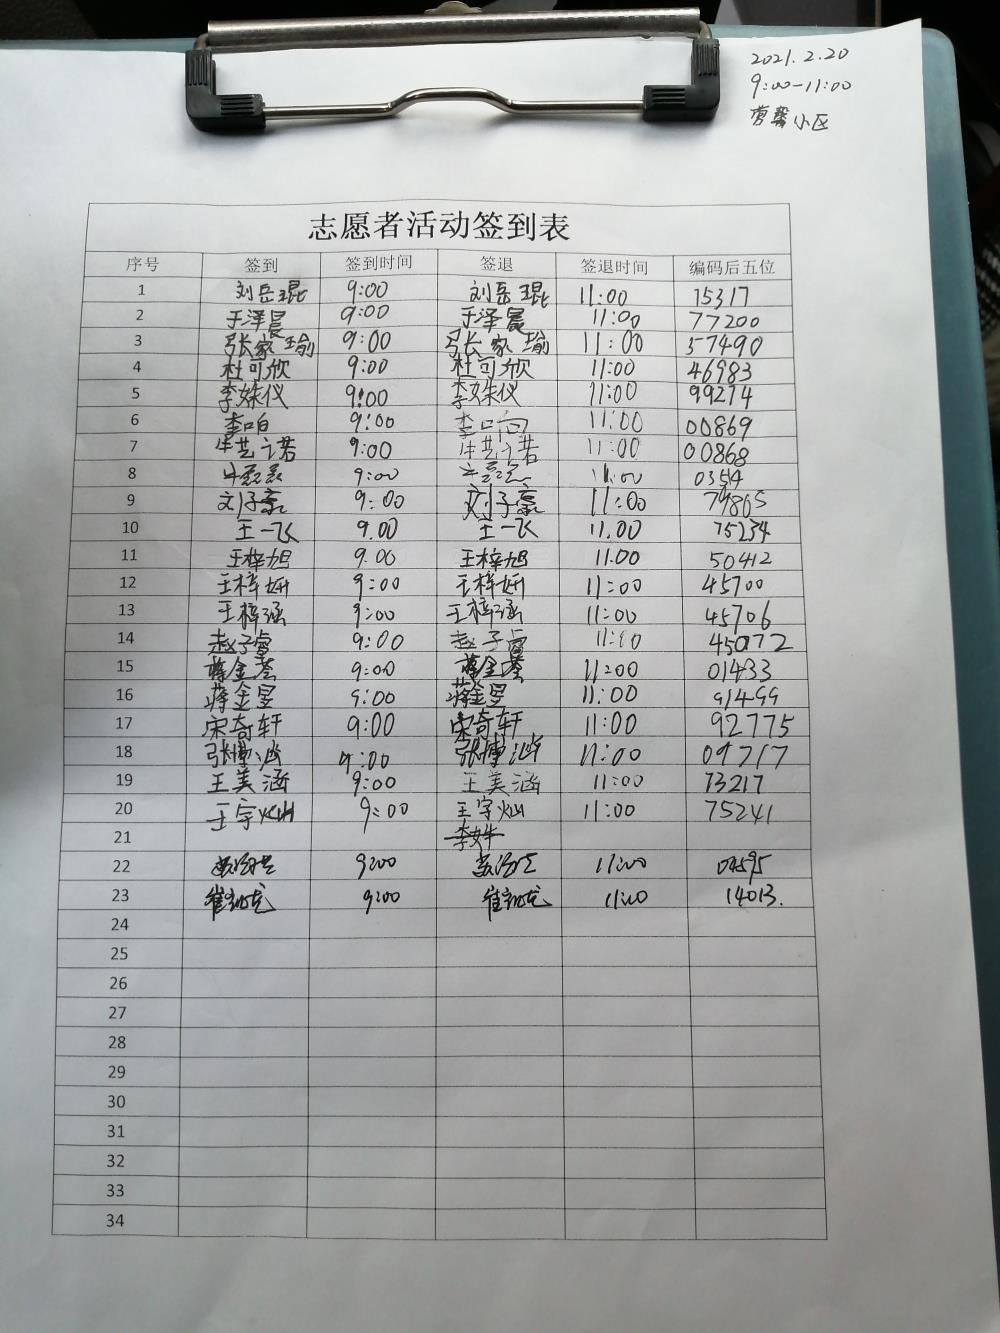 2021.2.20
9:00-11:00
小区
志愿者活动签到表
序号 签到 签到时间 签退 签退时间 编码后五位
1 刘岳琨 9:00 刘岳琨 11:00 15317
2 于泽晨 9:00 于泽晨 11:00 77200
3 张家瑜 9:00 张家瑜 11:00 57490
4 杜可欣 9:00 杜可欣 11:00 46983
5 李姝仪 9:00 李姝仪 11:00 99274
6 9:00 11:00 00869
7 牛芸诺 9:00 牛芸诺 11:00 00868
8 9:00 11:00
9 刘子豪 9:00 刘子豪 11:00 79865
10 王一飞 9.00 王一飞 11.00 75234
11 王梓旭 9.00 王梓旭 11.00 50412
12 王梓妍 9:00 王梓妍 11:00 45700
13 王梓涵 9:00 王梓涵 11:00 45706
14 赵子睿 9:00 赵子睿 11:00
15 9:00 11:00 01433
16 蒋金昱 9:00 蒋金昱 11:00 91499
17 宋奇轩 9:00 宋奇轩 11:00 92775
18 9:00 11:00 09717
19 王美涵 9:00 王美涵 11:00 73217
20 王宇灿 9:00 王宇灿 11:00 75241
21
22 9:00 11:00
23 9:00 11:00 14013.
24
25
26
27
28
29
30
31
32
33
34